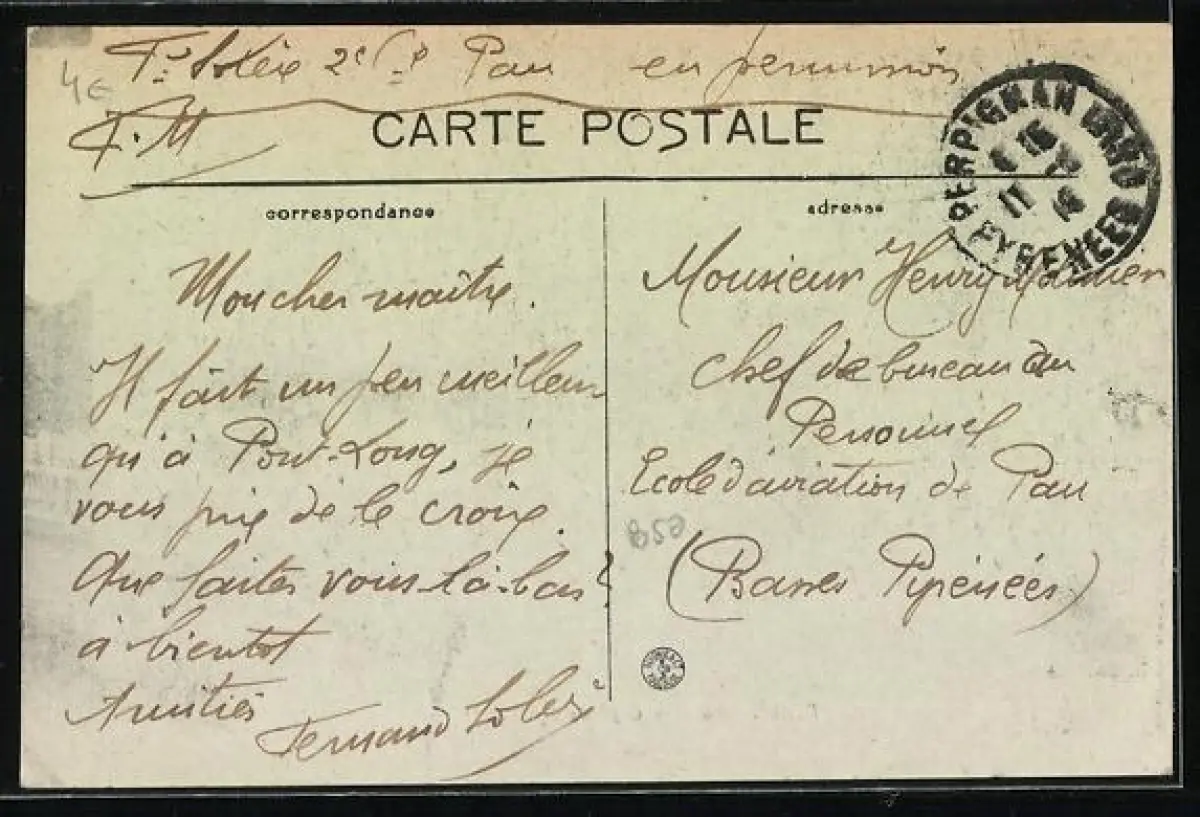 Fd Soléié 2e Cie Pau en permission
4€
F.M
CARTE POSTALE
PERPIGNAN
PYRENEES
11
16
correspondance
adresse
Mon cher maître.
Il fait un peu meilleur
qu'à Pont-Long, je
vous prie de le croire.
Que faites vous là-bas ?
à bientôt
Amitiés
Fernand
Monsieur Henry
Chef de bureau du
Personnel
Ecole d'aviation de Pau
B50
(Basses Pyrénées)